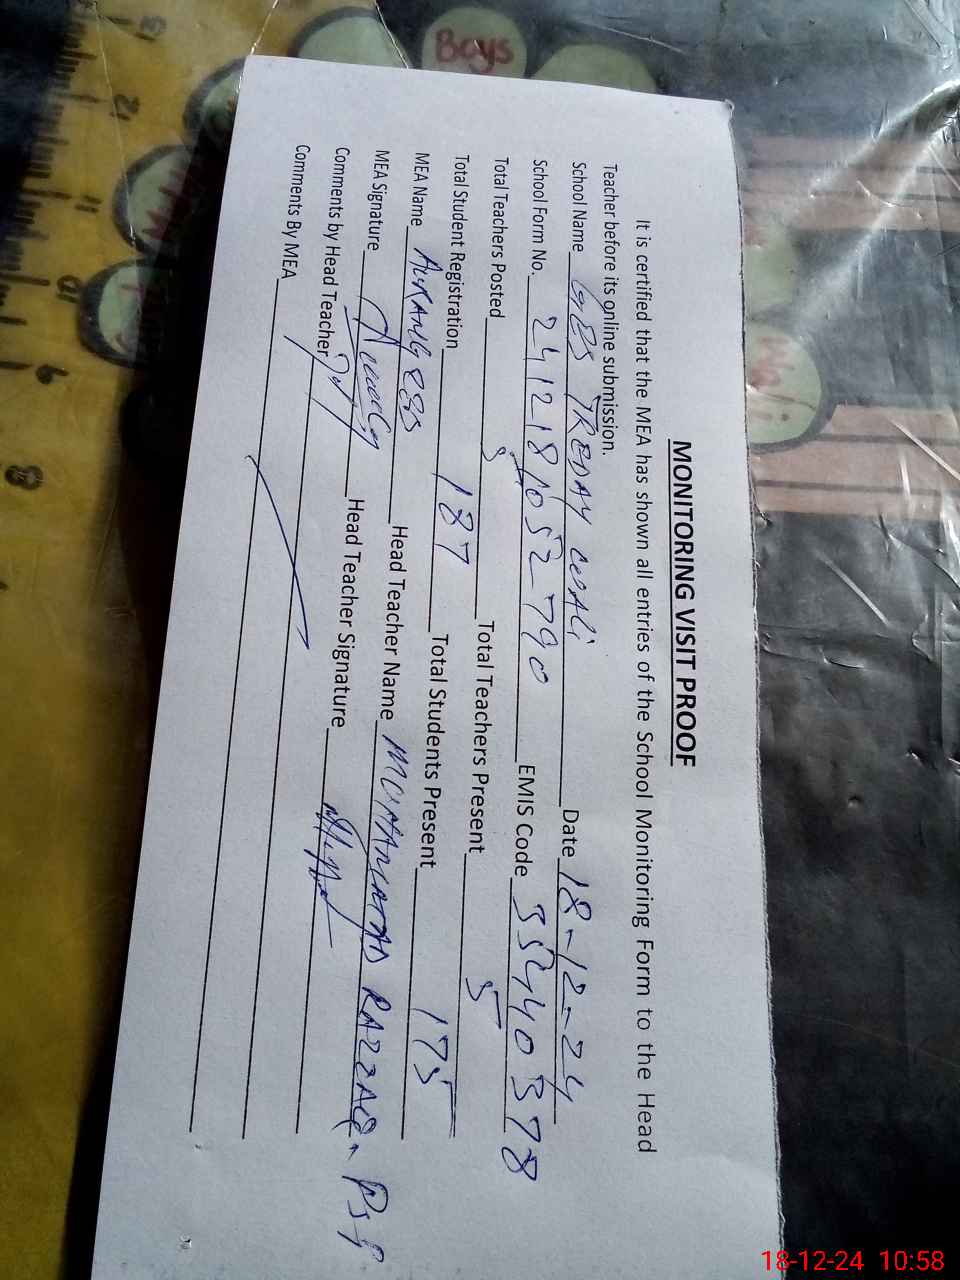 MONITORING VISIT PROOF
It is certified that the MEA has shown all entries of the School Monitoring Form to the Head
Teacher before its online submission.
School Name GES TREDAY Date 18-12-24
School Form No. 2412181052790 EMIS Code 35440378
Total Teachers Posted 5 Total Teachers Present 5
Total Student Registration 187 Total Students Present 175
MEA Name AURANG ZEB Head Teacher Name MUHAMMAD RAZZAQ, PST
MEA Signature Head Teacher Signature
Comments by Head Teacher
Comments By MEA
Boys
18-12-24 10:58